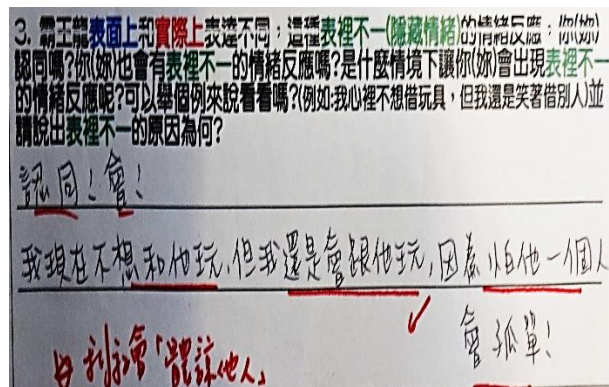 3. 霸王龍表面上和實際上表達不同，這種表裡不一(隱藏情緒)的情緒反應，你(妳)
認同嗎?你(妳)也會有表裡不一的情緒反應嗎?是什麼情境下讓你(妳)會出現表裡不一
的情緒反應呢?可以舉個例來說看看嗎?(例如:我心裡不想借玩具，但我還是笑著借別人)並
請說出表裡不一的原因為何?
認同!會!
我現在不想和他玩,但我還是會跟他玩,因為怕他一個人
會孤單!
「體諒他人」